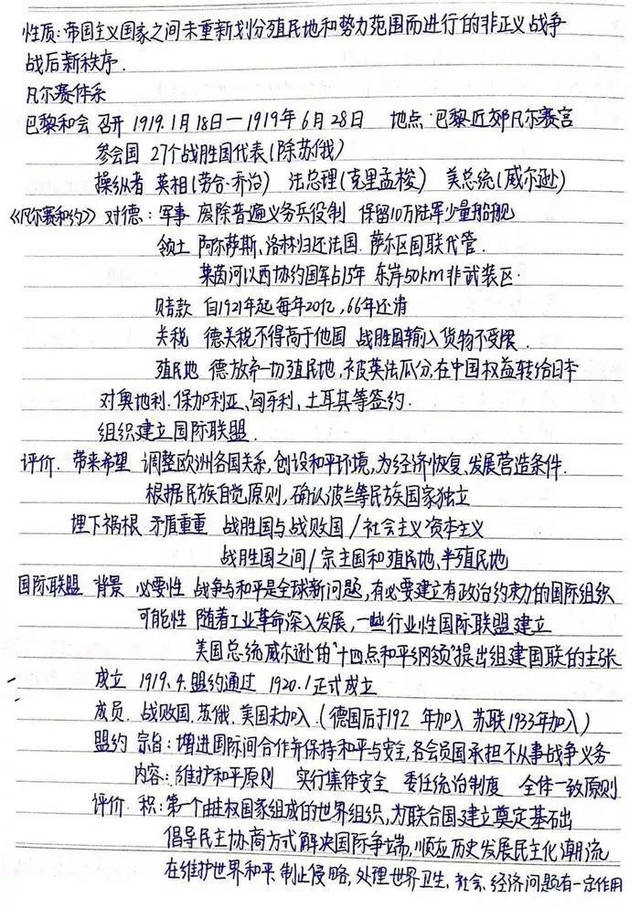 性质:帝国主义国家之间未重新划分殖民地和势力范围而进行的非正义战争
战后新秩序.
凡尔赛体系
巴黎和会 召开 1919.1月18日—1919年6月28日 地点:巴黎近郊凡尔赛宫
参会国 27个战胜国代表(除苏俄)
操纵者 英相(劳合·乔治) 法总理(克里孟梭) 美总统(威尔逊)
《凡尔赛和约》对德:军事 废除普遍义务兵役制 保留10万陆军少量船舰
领土 阿尔萨斯、洛林归还法国.萨尔区国联代管.
莱茵河以西协约国军占15年 东岸50km非武装区.
赔款 自1921年起每年20亿,66年还清
关税 德关税不得高于他国 战胜国输入货物不受限.
殖民地 德放弃一切殖民地,被英法瓜分,在中国权益转给日本
对奥地利.保加利亚、匈牙利、土耳其等签约.
组织建立国际联盟.
评价.带来希望 调整欧洲各国关系,创设和平环境,为经济恢复、发展营造条件.
根据民族自觉原则,确认波兰等民族国家独立
埋下祸根 矛盾重重 战胜国与战败国/社会主义资本主义
战胜国之间/宗主国和殖民地、半殖民地
国际联盟 背景 必要性 战争与和平是全球新问题,有必要建立有政治约束力的国际组织
可能性 随着工业革命深入发展,一些行业性国际联盟建立
美国总统威尔逊的"十四点和平纲领"提出组建国联的主张
成立 1919.4.盟约通过 1920.1正式成立
成员.战败国.苏俄.美国未加入.(德国后于192 年加入 苏联1933年加入)
盟约 宗旨:增进国际间合作并保持和平与安全,各会员国承担不从事战争义务
内容:维护和平原则 实行集体安全 委任统治制度 全体一致原则
评价 积:第一个由主权国家组成的世界组织,为联合国建立奠定基础
倡导民主协商方式解决国际争端,顺应历史发展民主化潮流
在维护世界和平、制止侵略,处理世界卫生,社会、经济问题有一定作用